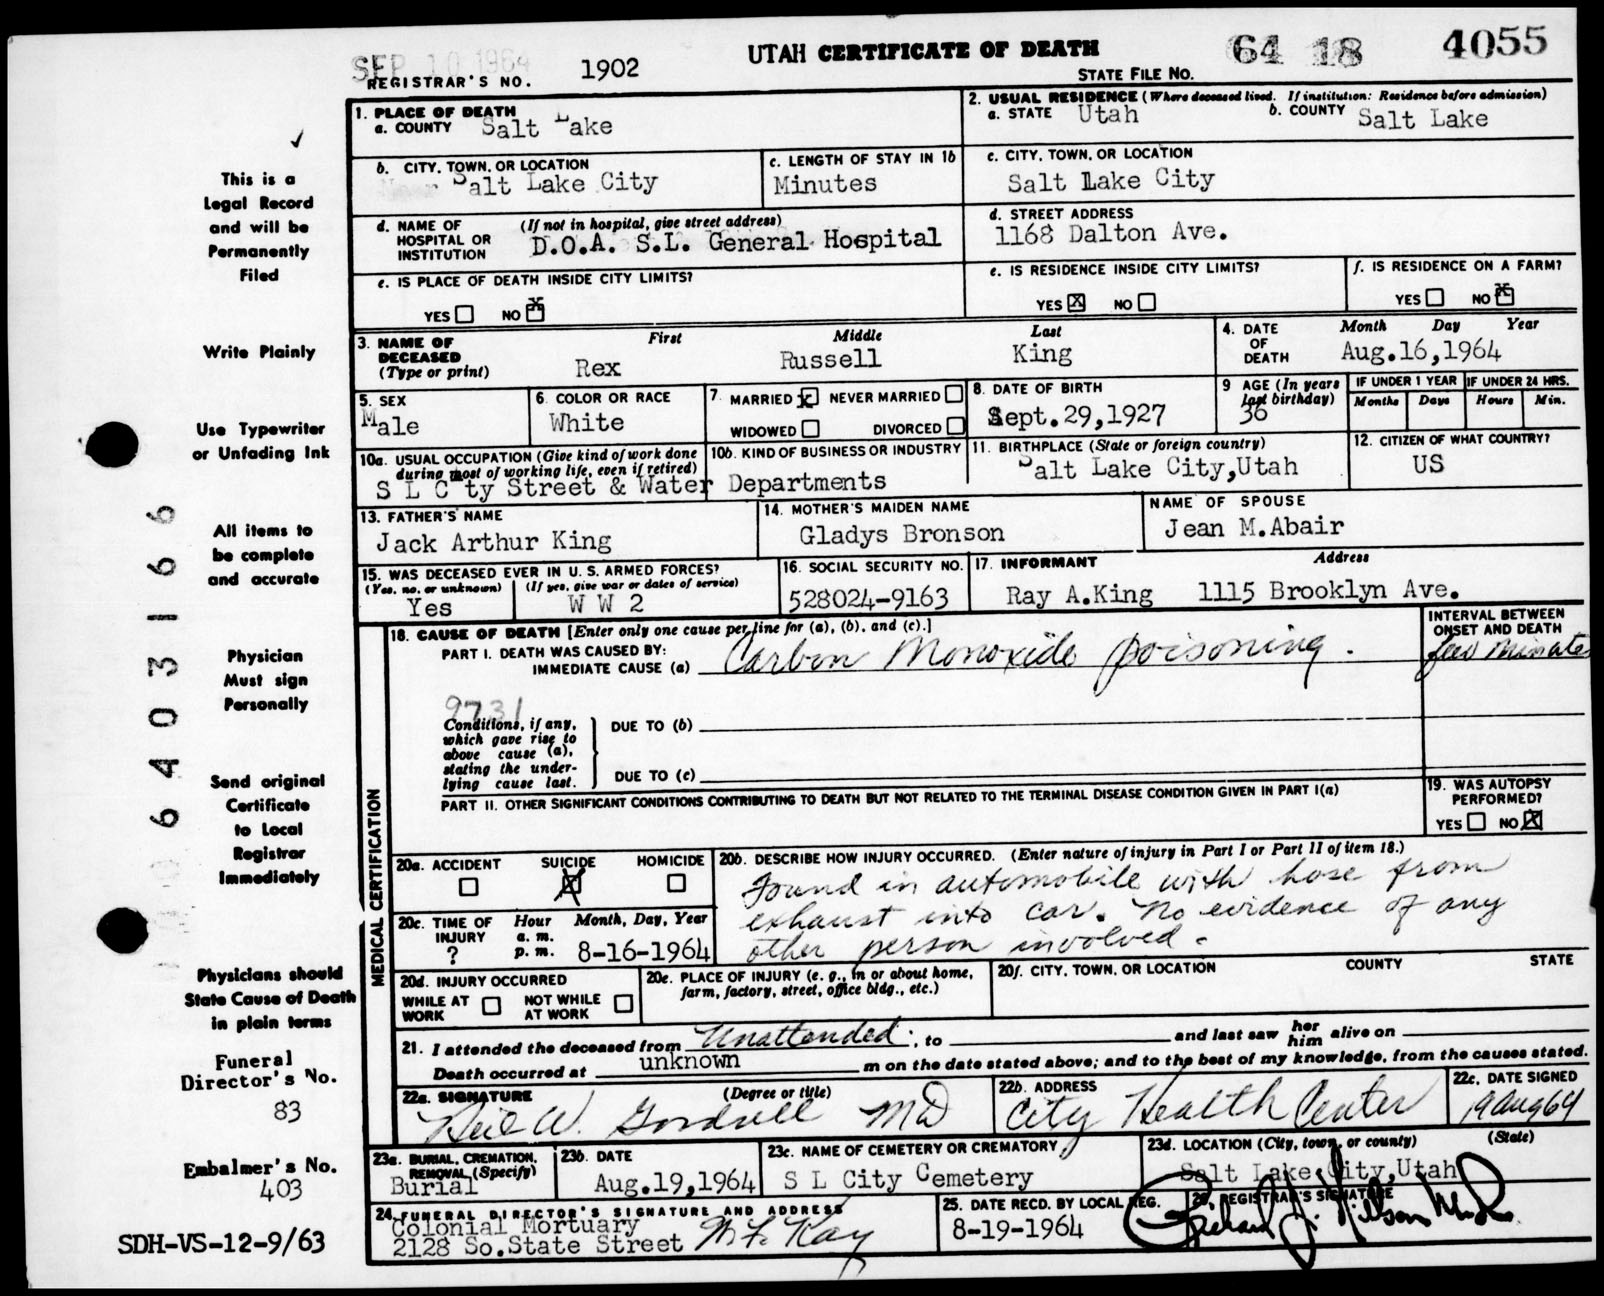 SEP 10 1964
UTAH CERTIFICATE OF DEATH
64 18 4055
REGISTRAR'S NO. 1902
STATE FILE No.
This is a
Legal Record
and will be
Permanently
Filed
Write Plainly
Use Typewriter
or Unfading Ink
All items to
be complete
and accurate
Physician
Must sign
Personally
Send original
Certificate
to Local
Registrar
Immediately
Physicians should
State Cause of Death
in plain terms
Funeral
Director's No.
83
Embalmer's No.
403
SDH-VS-12-9/63
6403166
1. PLACE OF DEATH
a. COUNTY Salt Lake
2. USUAL RESIDENCE (Where deceased lived. If institution: Residence before admission)
a. STATE Utah b. COUNTY Salt Lake
b. CITY, TOWN, OR LOCATION
Near Salt Lake City
c. LENGTH OF STAY IN 1b
Minutes
c. CITY, TOWN, OR LOCATION
Salt Lake City
d. NAME OF HOSPITAL OR INSTITUTION (If not in hospital, give street address)
D.O.A. S.L. General Hospital
d. STREET ADDRESS
1168 Dalton Ave.
e. IS PLACE OF DEATH INSIDE CITY LIMITS?
YES NO X
e. IS RESIDENCE INSIDE CITY LIMITS?
YES X NO
f. IS RESIDENCE ON A FARM?
YES NO X
3. NAME OF DECEASED (Type or print)
First Middle Last
Rex Russell King
4. DATE OF DEATH Month Day Year
Aug.16,1964
5. SEX
Male
6. COLOR OR RACE
White
7. MARRIED X NEVER MARRIED
WIDOWED DIVORCED
8. DATE OF BIRTH
Sept.29,1927
9 AGE (In years last birthday)
36
IF UNDER 1 YEAR
Months Days
IF UNDER 24 HRS.
Hours Min.
10a. USUAL OCCUPATION (Give kind of work done during most of working life, even if retired)
10b. KIND OF BUSINESS OR INDUSTRY
S L C ty Street & Water Departments
11. BIRTHPLACE (State or foreign country)
Salt Lake City,Utah
12. CITIZEN OF WHAT COUNTRY?
US
13. FATHER'S NAME
Jack Arthur King
14. MOTHER'S MAIDEN NAME
Gladys Bronson
NAME OF SPOUSE
Jean M.Abair
15. WAS DECEASED EVER IN U. S. ARMED FORCES?
(Yes, no, or unknown) (If yes, give war or dates of service)
Yes W W 2
16. SOCIAL SECURITY NO.
528024-9163
17. INFORMANT Address
Ray A.King 1115 Brooklyn Ave.
MEDICAL CERTIFICATION
18. CAUSE OF DEATH [Enter only one cause per line for (a), (b), and (c).]
PART I. DEATH WAS CAUSED BY:
IMMEDIATE CAUSE (a) Carbon Monoxide poisoning.
INTERVAL BETWEEN
ONSET AND DEATH
few minutes
9731
Conditions, if any,
which gave rise to
above cause (a),
stating the under-
lying cause last.
DUE TO (b)
DUE TO (c)
PART II. OTHER SIGNIFICANT CONDITIONS CONTRIBUTING TO DEATH BUT NOT RELATED TO THE TERMINAL DISEASE CONDITION GIVEN IN PART I(a)
19. WAS AUTOPSY
PERFORMED?
YES NO X
20a. ACCIDENT SUICIDE HOMICIDE
X
20b. DESCRIBE HOW INJURY OCCURRED. (Enter nature of injury in Part I or Part II of item 18.)
Found in automobile with hose from
exhaust into car. No evidence of any
other person involved.
20c. TIME OF INJURY Hour Month, Day, Year
? a. m. p. m. 8-16-1964
20d. INJURY OCCURRED
WHILE AT WORK NOT WHILE AT WORK
20e. PLACE OF INJURY (e. g., in or about home, farm, factory, street, office bldg., etc.)
20f. CITY, TOWN, OR LOCATION COUNTY STATE
21. I attended the deceased from Unattended, to and last saw her him alive on
Death occurred at unknown m on the date stated above; and to the best of my knowledge, from the causes stated.
22a. SIGNATURE (Degree or title)
MD
22b. ADDRESS
City Health Center
22c. DATE SIGNED
19 Aug 64
23a. BURIAL, CREMATION, REMOVAL (Specify)
Burial
23b. DATE
Aug.19,1964
23c. NAME OF CEMETERY OR CREMATORY
S L City Cemetery
23d. LOCATION (City, town, or county) (State)
Salt Lake City,Utah
24. FUNERAL DIRECTOR'S SIGNATURE AND ADDRESS
Colonial Mortuary
2128 So.State Street
25. DATE RECD. BY LOCAL REG.
8-19-1964
26. REGISTRAR'S SIGNATURE